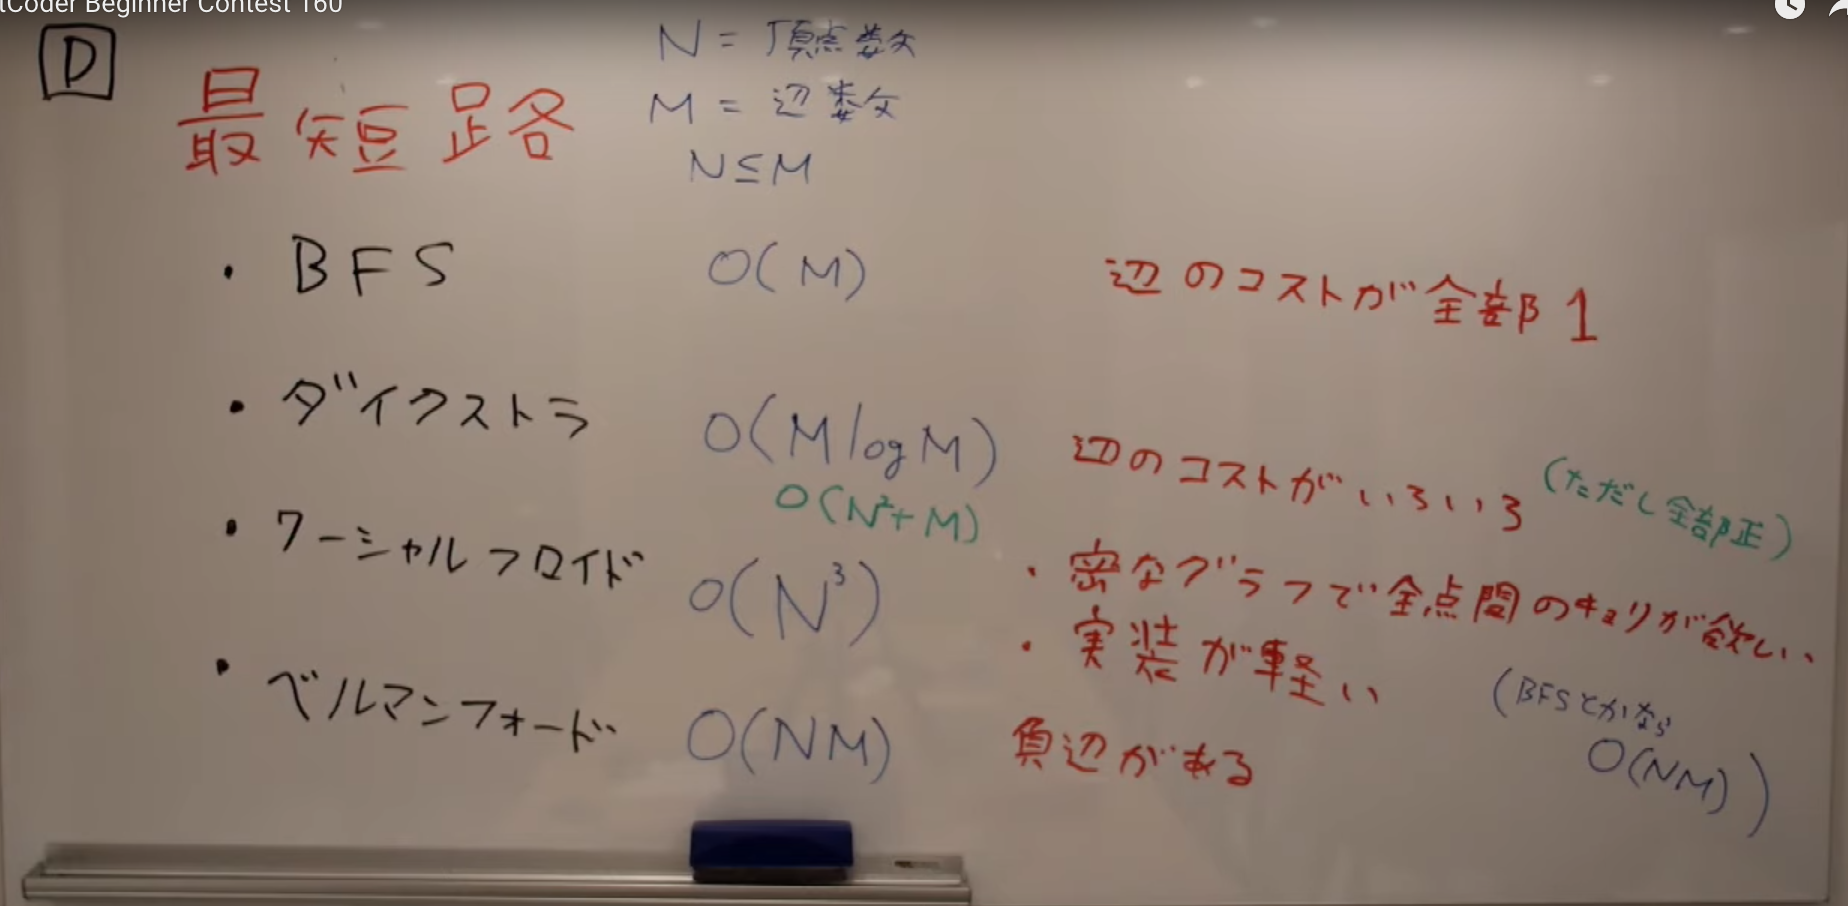 tCoder Beginner Contest 160
D
最短路
N = 頂点数
M = 辺数
N≦M
・BFS O(M) 辺のコストが全部1
・ダイクストラ O(MlogM) 辺のコストがいろいろ (ただし全部正)
O(N²+M)
・ワーシャルフロイド O(N³) ・密なグラフで全点間のキョリが欲しい、
・実装が軽い
(BFSとかなら
O(NM))
・ベルマンフォード O(NM) 負辺がある